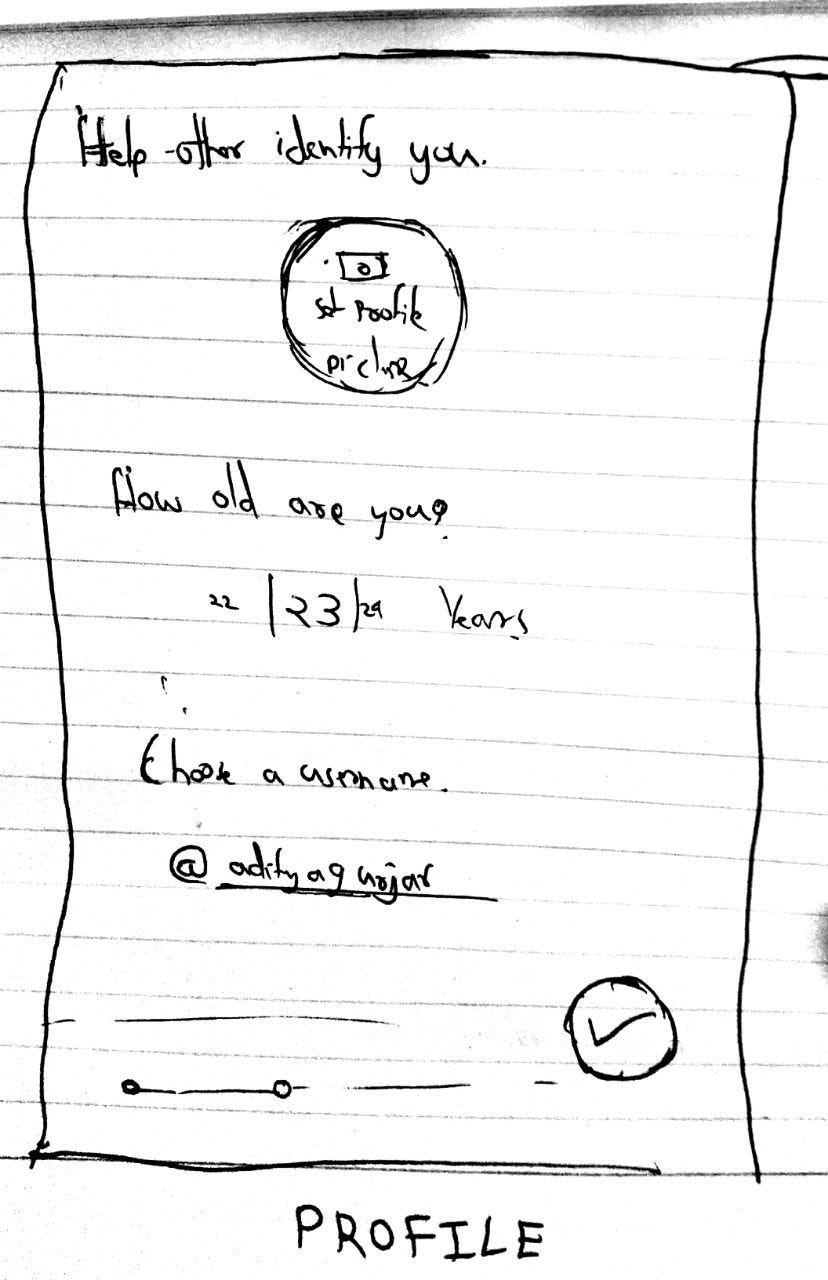 Help other identify you.
Set Profile
picture
How old are you?
22 |23| 24 Years
Choose a username.
@adityagurjar
PROFILE